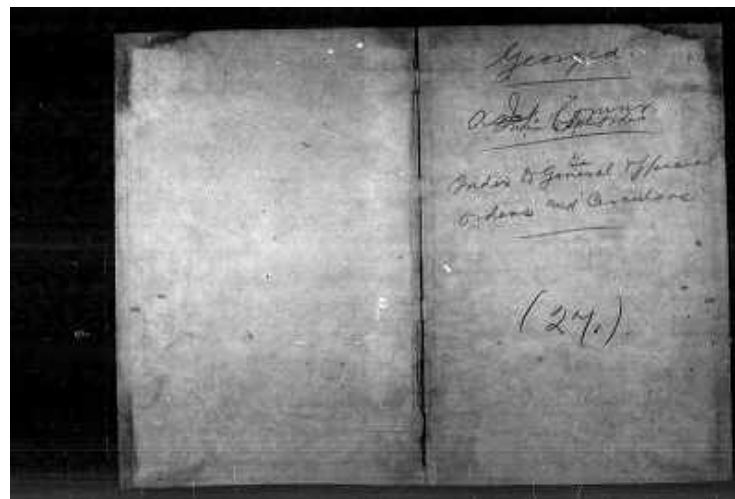 Georgia
Asst. Commr
Index to General & Special
Orders and Circulars
(27.)